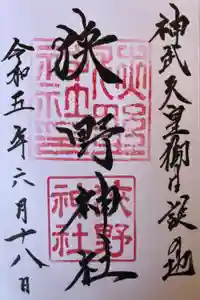 神武天皇御降誕地
狭野神社
令和五年六月十八日
狭野
神社